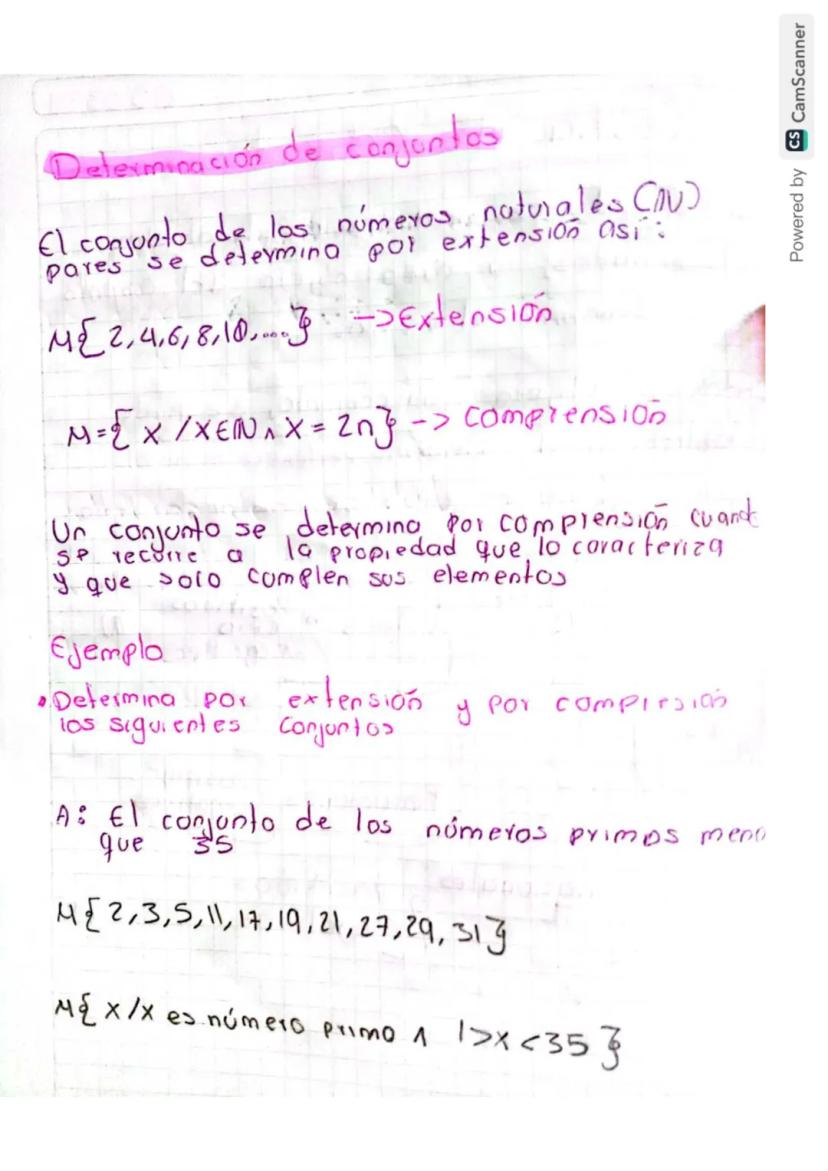 Determinación de conjuntos
El conjunto de los números naturales (IN)
pares se determina por extensión así:
M{2,4,6,8,10,...} -> Extensión
M={ x /x∈IN ∧ x = 2n} -> comprensión
Un conjunto se determina por comprensión cuand
se recurre a la propiedad que lo caracteriza
y que solo complen sus elementos
Ejemplo
• Determina por extensión y por
los siguientes conjuntos
A: El conjunto de los números primos meno
que 35
M{2,3,5,11,17,19,21,27,29,31}
M{x/x es número primo ∧ 1>x<35}
Powered by CS CamScanner